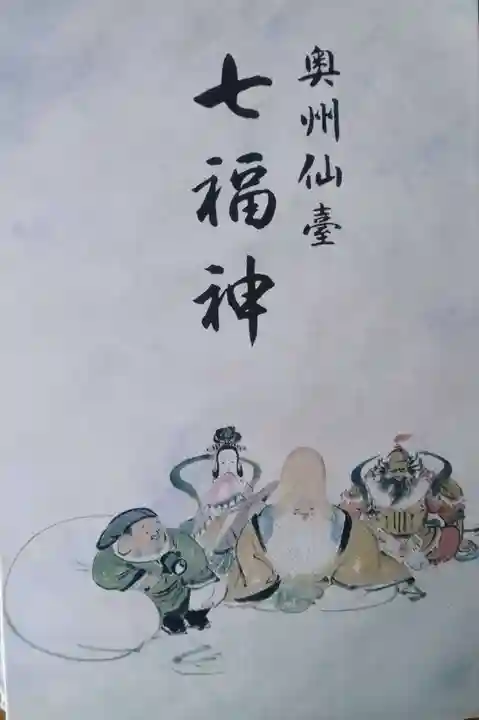 奥州仙臺
七福神